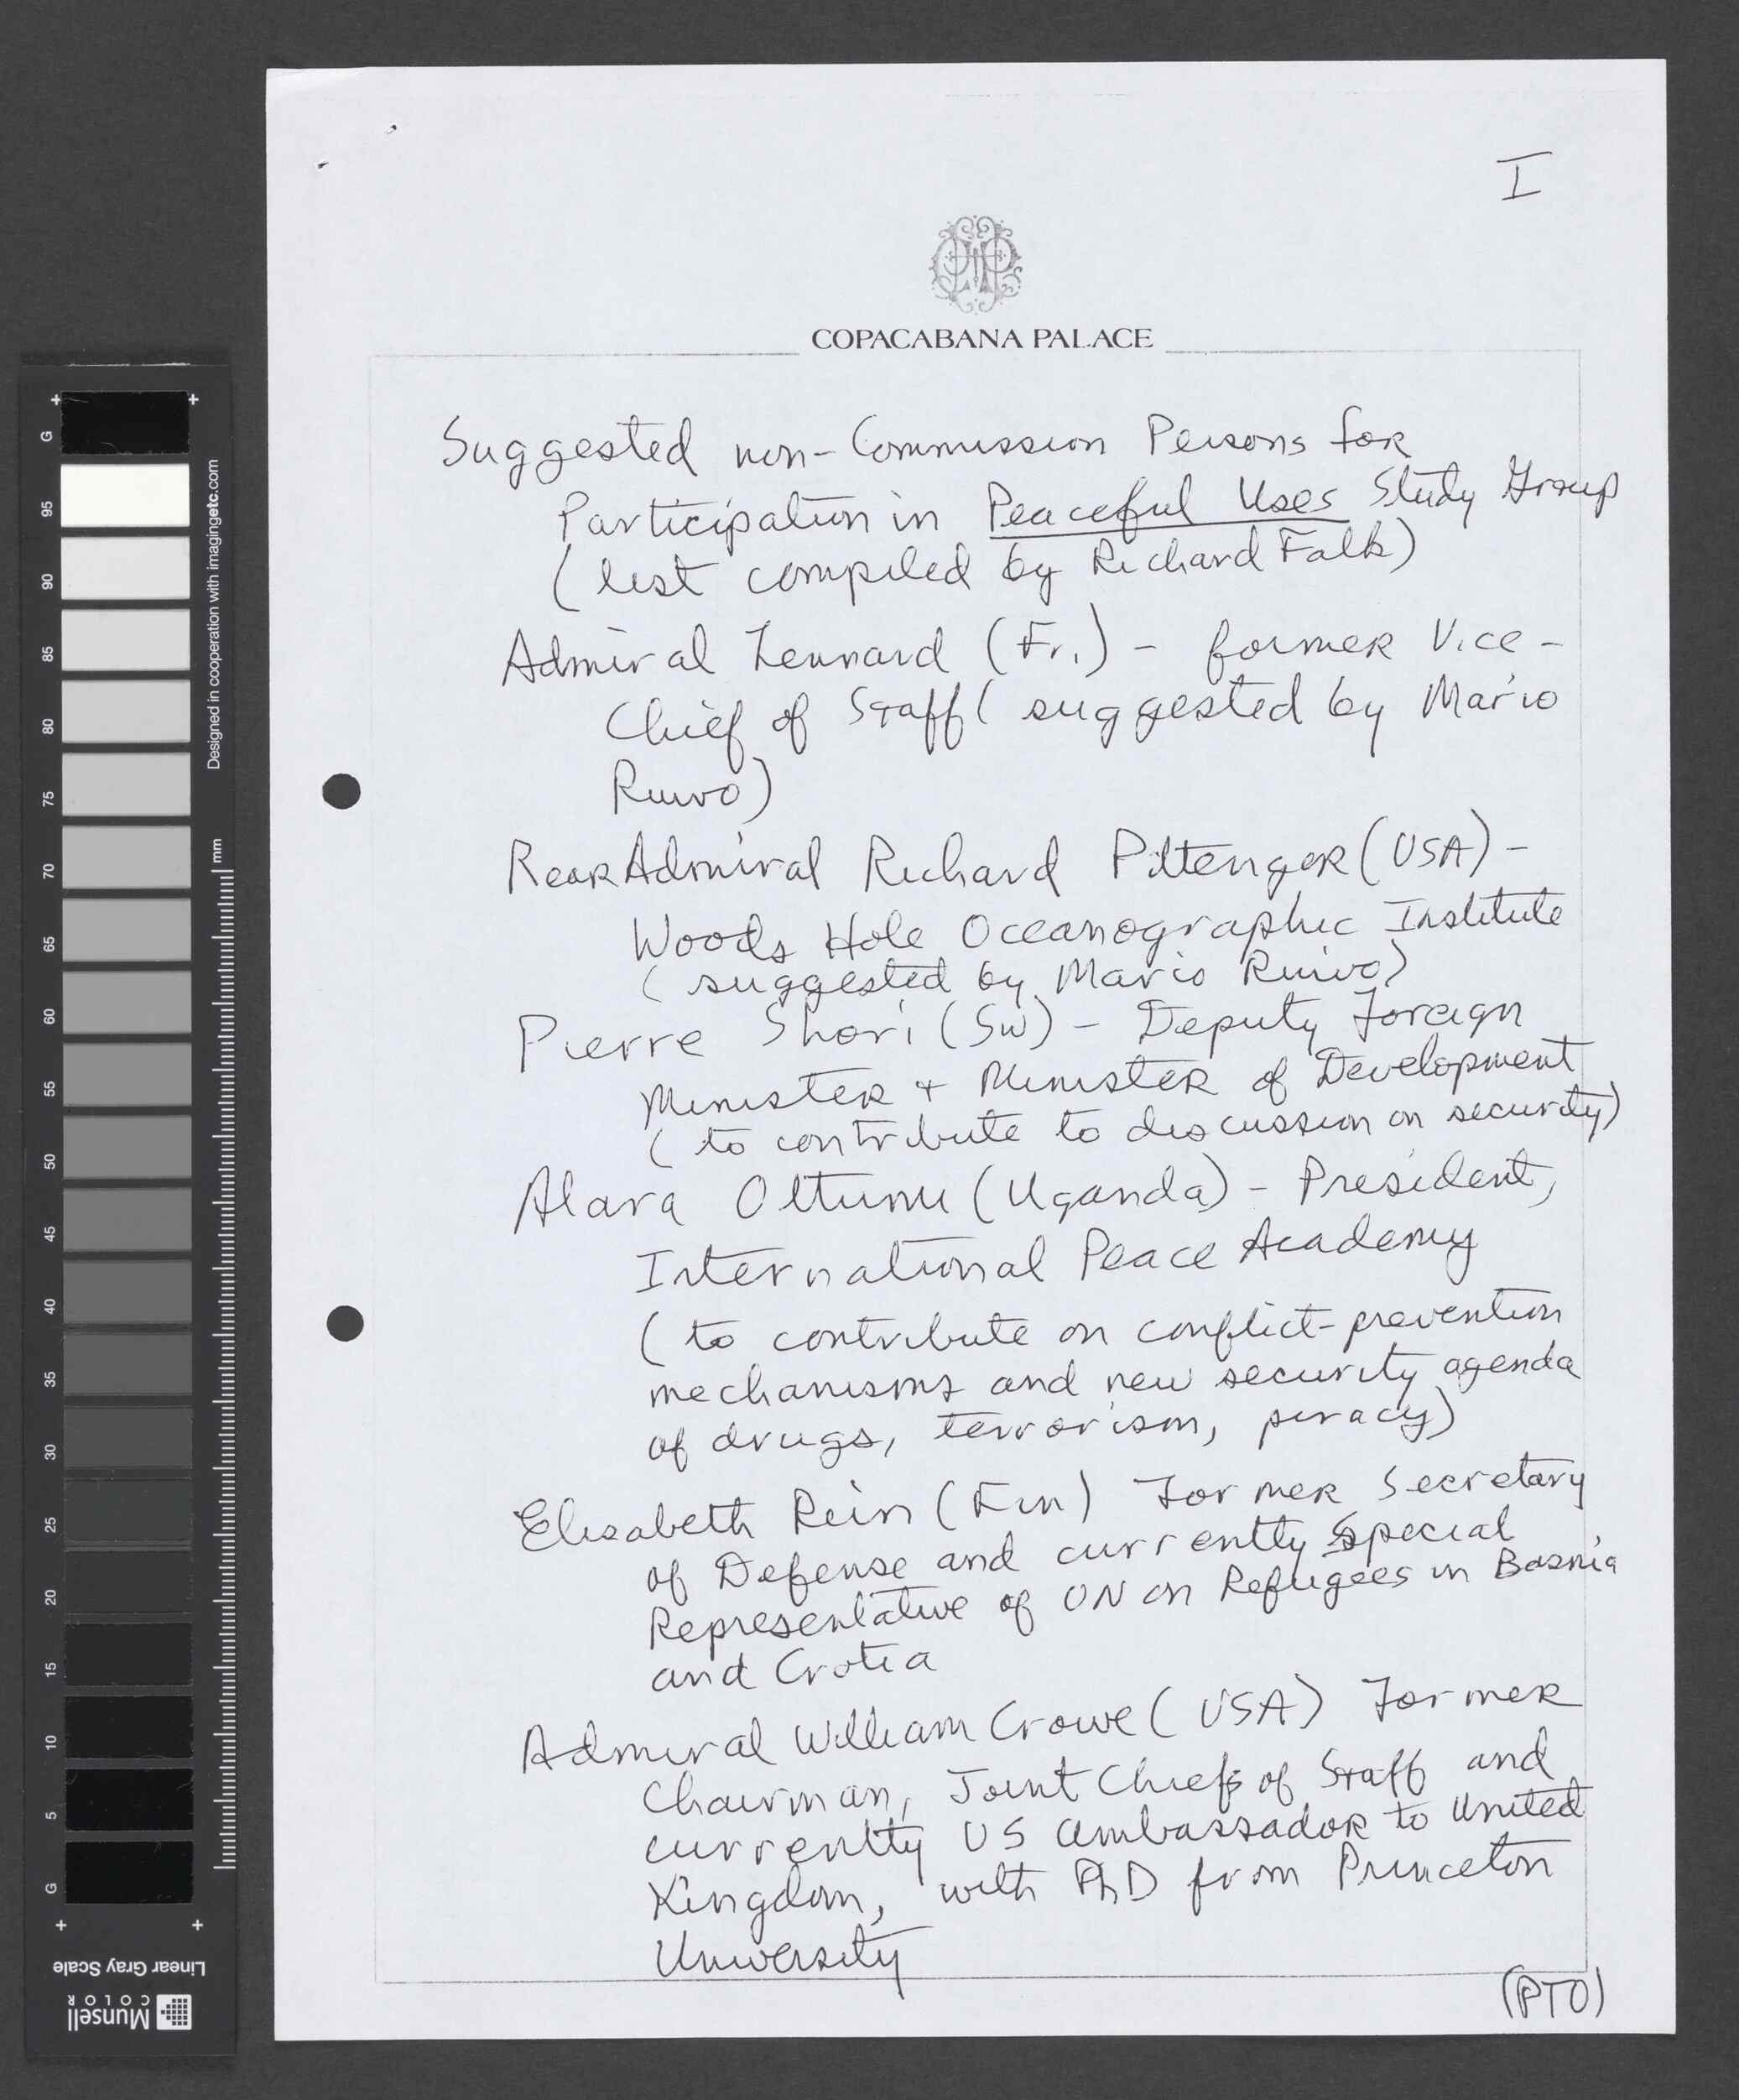 I
COPACABANA PALACE
Suggested non-Commission Persons for
Participation in Peaceful Uses Study Group
(list compiled by Richard Falk)
Admiral Lennard (Fr.) - former Vice-
Chief of Staff (suggested by Mario
Ruivo)
Rear Admiral Richard Pittenger (USA) -
Woods Hole Oceanographic Institute
(suggested by Mario Ruivo)
Pierre Shori (Sw) - Deputy Foreign
Minister + Minister of Development
(to contribute to discussion on security)
Alara Oltunu (Uganda) - President,
International Peace Academy
(to contribute on conflict-prevention
mechanisms and new security agenda
of drugs, terrorism, piracy)
Elisabeth Rein (Fin) Former Secretary
of Defense and currently Special
Representative of UN on Refugees in Bosnia
and Crotia
Admiral William Crowe (USA) Former
Chairman, Joint Chiefs of Staff and
currently US Ambassador to United
Kingdom, with PhD from Princeton
University
(PTO)
G
95
90
85
80
75
70
65
60
55
50
45
40
35
30
25
20
15
10
5
G
mm
Designed in cooperation with imagingetc.com
Linear Gray Scale
Munsell
COLOR